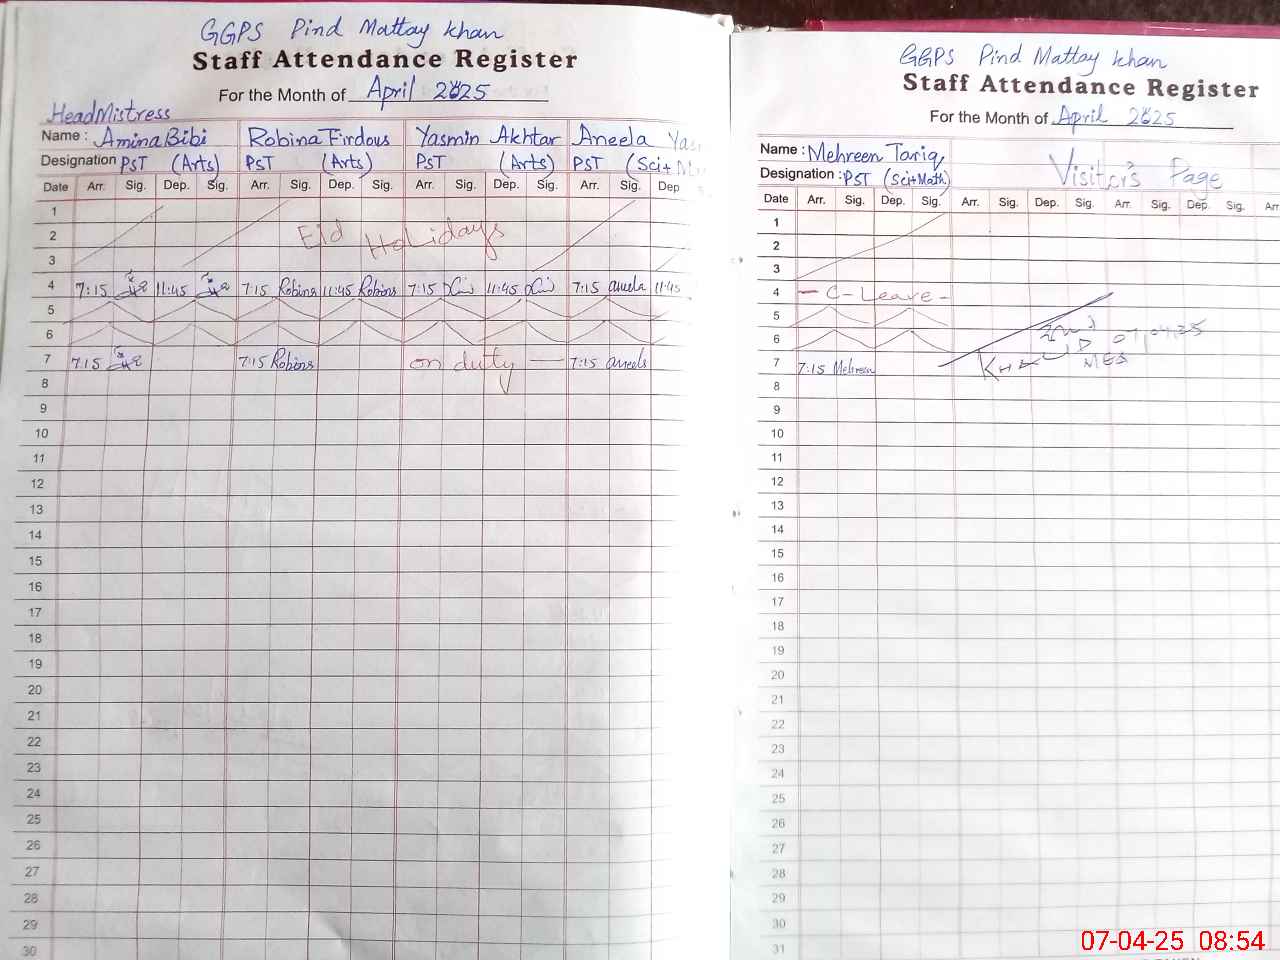 GGPS Pind Mattay Khan
Staff Attendance Register
For the Month of April 2025
HeadMistress
Name: Amina Bibi Robina Firdous Yasmin Akhtar Aneela
Designation PST (Arts) PST (Arts) PST (Arts) PST (Sci+
Date Arr. Sig. Dep. Sig. Arr. Sig. Dep. Sig. Arr. Sig. Dep. Sig. Arr. Sig. Dep
1
2 Eid Holidays
3
4 7:15 11:45 7:15 Robina 11:45 Robina 7:15 11:45 7:15 aneela 11:45
5
6
7 7:15 7:15 Robina on dutty 7:15 aneela
8
9
10
11
12
13
14
15
16
17
18
19
20
21
22
23
24
25
26
27
28
29
30
GGPS Pind Mattay Khan
Staff Attendance Register
For the Month of April 2025
Name: Mehreen Tariq Visiter's Page
Designation: PST (Sci+Math)
Date Arr. Sig. Dep. Sig. Arr. Sig. Dep. Sig. Arr. Sig. Dep. Sig. Arr
1
2
3
4 - C-Leave -
5
6 07,04,25
7 7:15 Mehreen
8
9
10
11
12
13
14
15
16
17
18
19
20
21
22
23
24
25
26
27
28
29
30
31
07-04-25 08:54